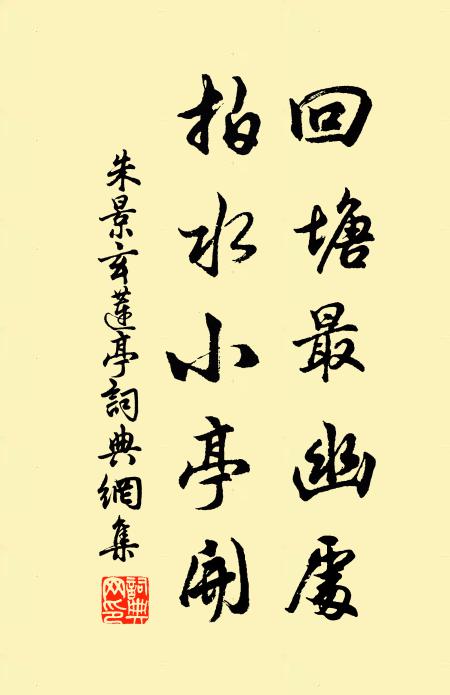 回塘最幽處
拍水小亭開
朱景玄蓮亭詞典網集
詞典網印